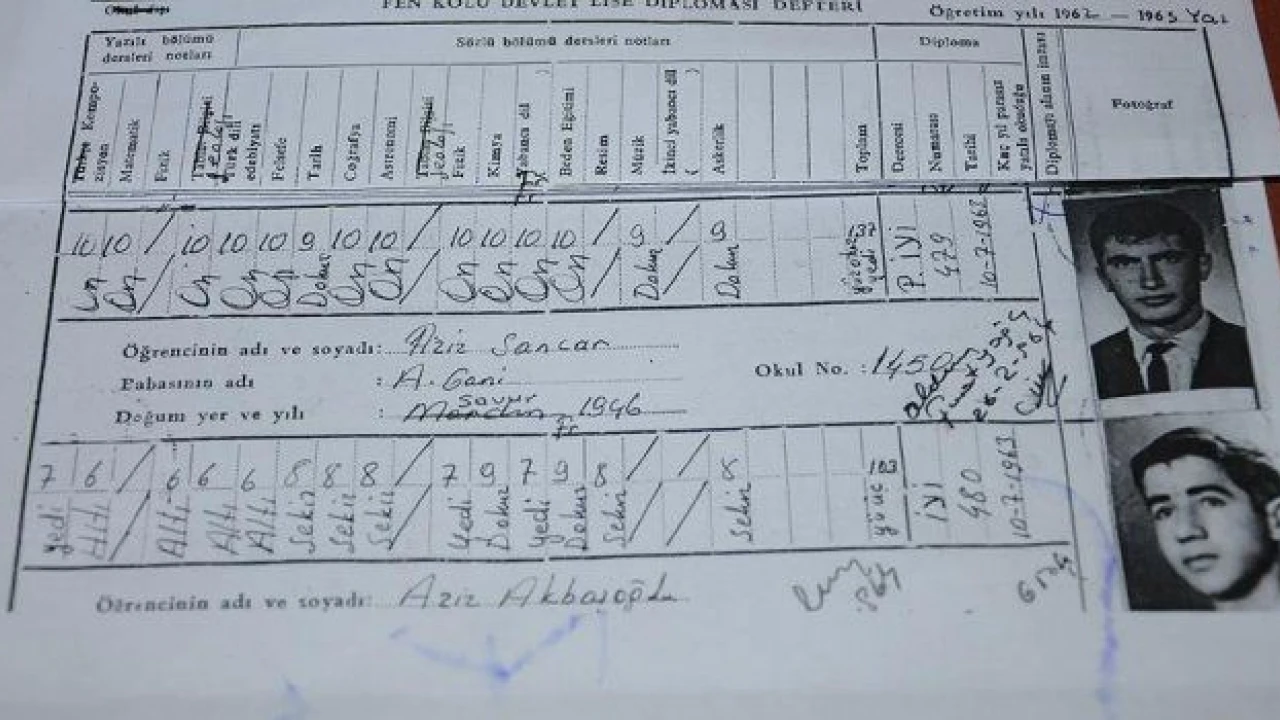 FEN KOLU DEVLET LİSE DİPLOMASI DEFTERİ
Öğretim yılı 1962 — 1963 Yaz
Yazılı bölümü dersleri notları
Sözlü bölümü dersleri notları
Diploma
Kompozisyon
Matematik
Fizik
Jeoloji
Türk dili edebiyatı
Felsefe
Tarih
Coğrafya
Astronomi
Jeoloji
Fizik
Kimya
Yabancı dil ( )
Beden Eğitimi
Resim
Müzik
İkinci yabancı dil ( )
Askerlik
Toplam
Derecesi
Numarası
Tarihi
Diplomayı alanın imzası
Fotoğraf
10 10 / 10 10 10 9 10 10 / 10 10 10 10 / 9 / 9 137 P. İYİ 479 10-7-1963
On On / On On On Dokuz On On / On On On On / Dokuz / Dokuz yüzotuz yedi
Öğrencinin adı ve soyadı: Aziz Sancar
Babasının adı : A. Gani
Okul No. : 1450
Savur
Doğum yer ve yılı : Mardin 1946
7 6 / 6 6 6 8 8 8 / 7 9 7 9 8 / / 8 103 İYİ 480 10-7-1963
Yedi Altı / Altı Altı Altı Sekiz Sekiz Sekiz / Yedi Dokuz Yedi Dokuz Sekiz / / Sekiz yüzüç
Öğrencinin adı ve soyadı: Aziz Akbaşoğlu